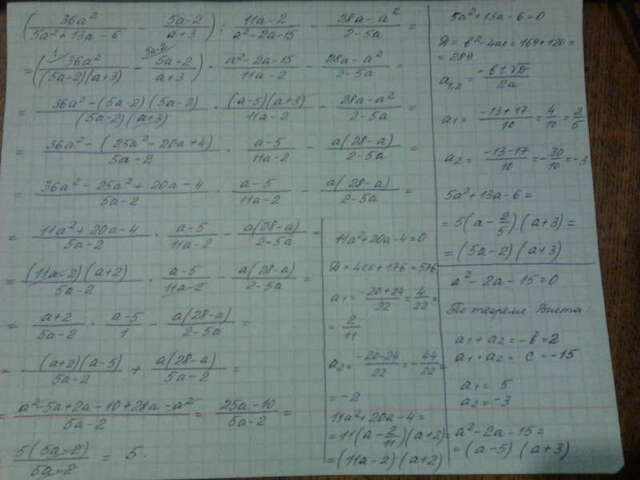 (36a²/(5a²+13a-6) - (5a-2)/(a+3)) : (11a-2)/(a²-2a-15) - (28a-a²)/(2-5a) =
= (36a²/((5a-2)(a+3)) - (5a-2)/(a+3)) · (a²-2a-15)/(11a-2) - (28a-a²)/(2-5a) =
= (36a²-(5a-2)(5a-2))/((5a-2)(a+3)) · ((a-5)(a+3))/(11a-2) - (28a-a²)/(2-5a) =
= (36a²-(25a²-20a+4))/(5a-2) · (a-5)/(11a-2) - a(28-a)/(2-5a) =
= (36a²-25a²+20a-4)/(5a-2) · (a-5)/(11a-2) - a(28-a)/(2-5a) =
= (11a²+20a-4)/(5a-2) · (a-5)/(11a-2) - a(28-a)/(2-5a) =
= ((11a-2)(a+2))/(5a-2) · (a-5)/(11a-2) - a(28-a)/(2-5a) =
= (a+2)/(5a-2) · (a-5)/1 - a(28-a)/(2-5a) =
= ((a+2)(a-5))/(5a-2) + a(28-a)/(5a-2) =
= (a²-5a+2a-10+28a-a²)/(5a-2) = (25a-10)/(5a-2) =
5(5a-2)/(5a-2) = 5.
11a²+20a-4=0
D=400+176=576
a₁ = (-20+24)/22 = 4/22 =
= 2/11
a₂ = (-20-24)/22 = -44/22 =
= -2
11a²+20a-4=
=11(a-2/11)(a+2)=
=(11a-2)(a+2)
5a²+13a-6=0
D=b²-4ac=169+120=
=289
a₁,₂ = (-b±√D)/2a
a₁ = (-13+17)/10 = 4/10 = 2/5
a₂ = (-13-17)/10 = -30/10 = -3
5a²+13a-6=
=5(a-2/5)(a+3)=
=(5a-2)(a+3)
a²-2a-15=0
По теореме Виета:
a₁+a₂=-b=2
a₁·a₂=c=-15
a₁=5
a₂=-3
a²-2a-15=
=(a-5)(a+3)